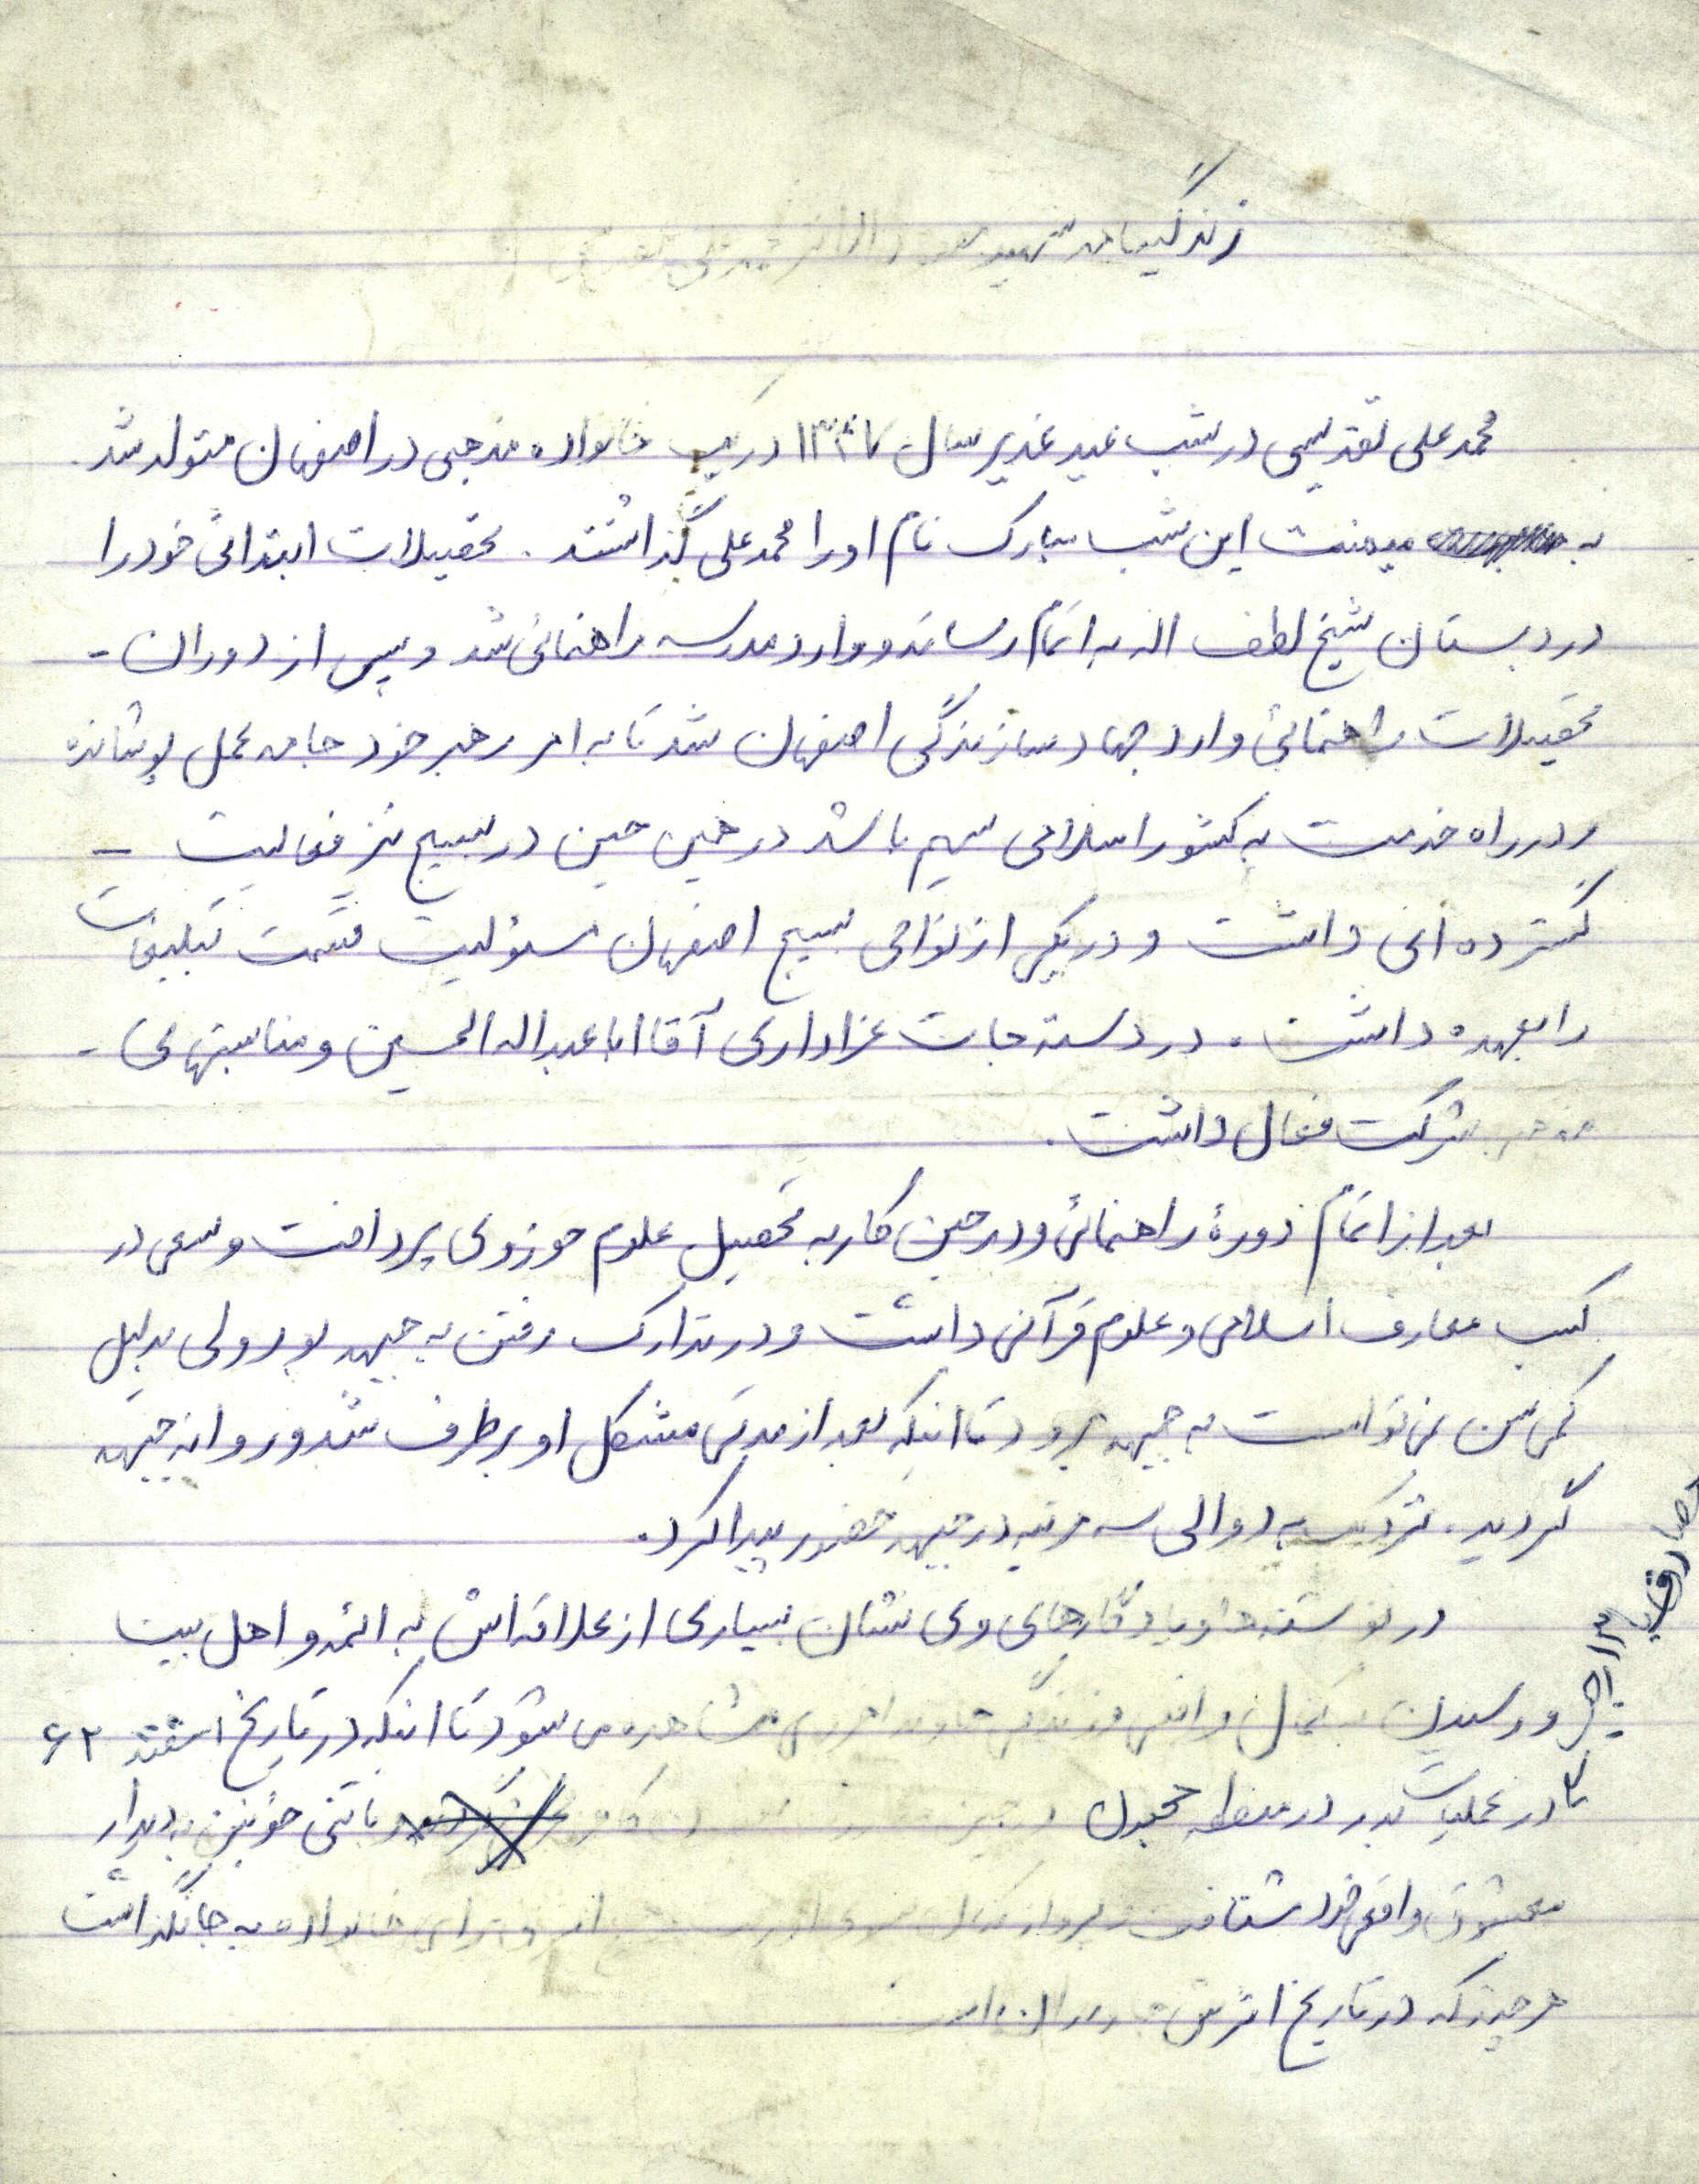 زندگینامه شهید
محمدعلی تقدیسی در شب عید غدیر سال ۱۳۴۷ در یک خانواده مذهبی در اصفهان متولد شد.
به میمنت این شب مبارک نام او را محمدعلی گذاشتند. تحصیلات ابتدائی خود را
در دبستان شیخ لطف اله به اتمام رساند و وارد مدرسه راهنمائی شد و پس از دوران -
تحصیلات راهنمائی وارد جهاد سازندگی اصفهان شد تا به امر رهبر خود جامه عمل پوشانده
و در راه خدمت به کشور اسلامی سهیم باشد در همین حین در بسیج نیز فعالیت -
گسترده ای داشت و در یکی از نواحی بسیج اصفهان مسئولیت قسمت تبلیغات
را بعهده داشت. در دسته جات عزاداری آقا اباعبداله الحسین و مناسبتهای -
مذهبی شرکت فعال داشت.
بعد از اتمام دورهٔ راهنمائی و در حین کار به تحصیل علوم حوزوی پرداخت و سعی در
کسب معارف اسلامی و علوم قرآنی داشت و در تدارک رفتن به جبهه بود ولی بدلیل
کمی سن نمی توانست به جبهه برود تا اینکه بعد از مدتی مشکل او برطرف شد و روانه جبهه
گردید. نزدیک به دو الی سه مرتبه در جبهه حضور پیدا کرد.
در نوشته ها و یادگارهای وی نشان بسیاری از علاقه اش به ائمه و اهل بیت
و رسیدن به کمال واقعی و زندگی مشاهده می شود تا اینکه در تاریخ اسفند ۶۲
در عملیات بدر در منطقه با تنی خونین به دیدار
معشوق واقعی خود شتافت برای خانواده به جا گذاشت
هر چند که در تاریخ اثرش